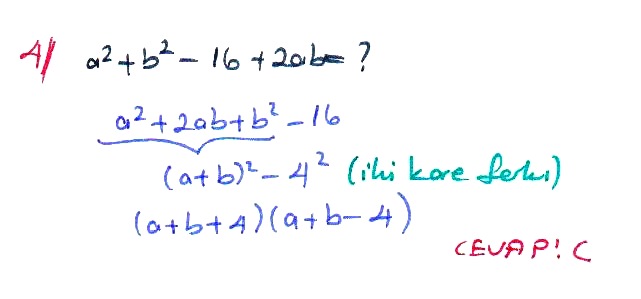 4/ a² + b² - 16 + 2ab = ?
a² + 2ab + b² - 16
(a+b)² - 4² (iki kare farkı)
(a+b+4)(a+b-4)
CEVAP: C